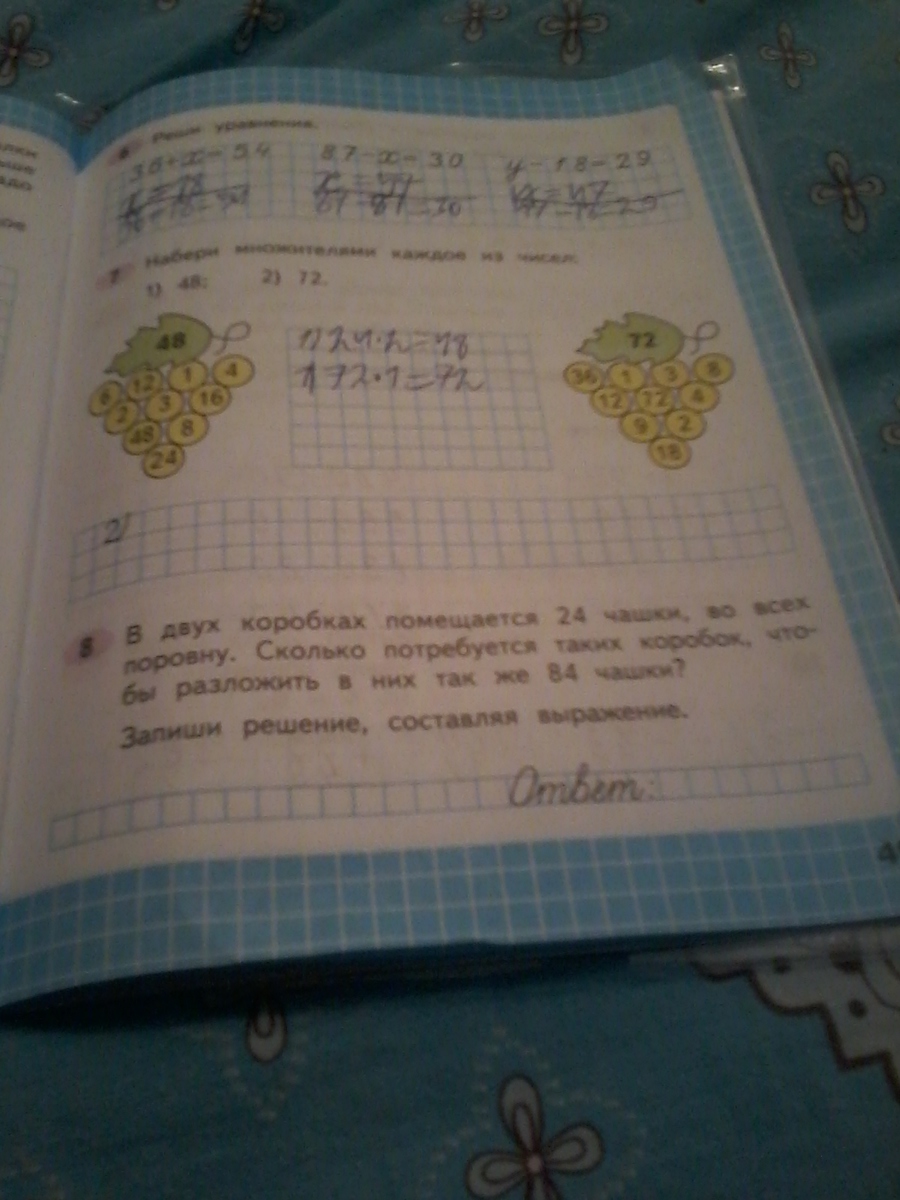 Реши уравнения.
36+x=54 87-x=30 y-18=29
x=18
7 Набери множителями каждое из чисел:
1) 48; 2) 72.
48
6 12 1 4
2 3 16
48 8
24
1) 24·2=48
1) 72·1=72
72
36 1 3 8
12 72 4
9 2
18
2)
8 В двух коробках помещается 24 чашки, во всех
поровну. Сколько потребуется таких коробок, что-
бы разложить в них так же 84 чашки?
Запиши решение, составляя выражение.
Ответ: